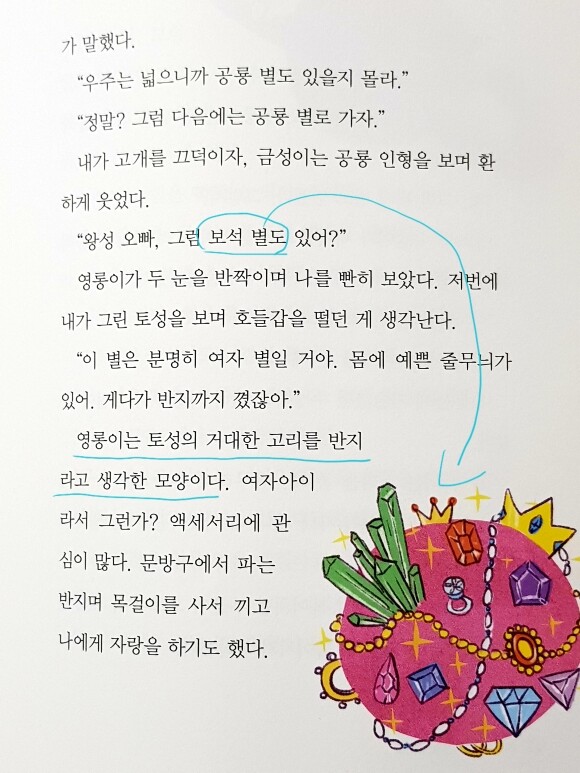 가 말했다.
“우주는 넓으니까 공룡 별도 있을지 몰라.”
“정말? 그럼 다음에는 공룡 별로 가자.”
내가 고개를 끄덕이자, 금성이는 공룡 인형을 보며 환
하게 웃었다.
“왕성 오빠, 그럼 보석 별도 있어?”
영롱이가 두 눈을 반짝이며 나를 빤히 보았다. 저번에
내가 그린 토성을 보며 호들갑을 떨던 게 생각난다.
“이 별은 분명히 여자 별일 거야. 몸에 예쁜 줄무늬가
있어. 게다가 반지까지 꼈잖아.”
영롱이는 토성의 거대한 고리를 반지
라고 생각한 모양이다. 여자아이
라서 그런가? 액세서리에 관
심이 많다. 문방구에서 파는
반지며 목걸이를 사서 끼고
나에게 자랑을 하기도 했다.